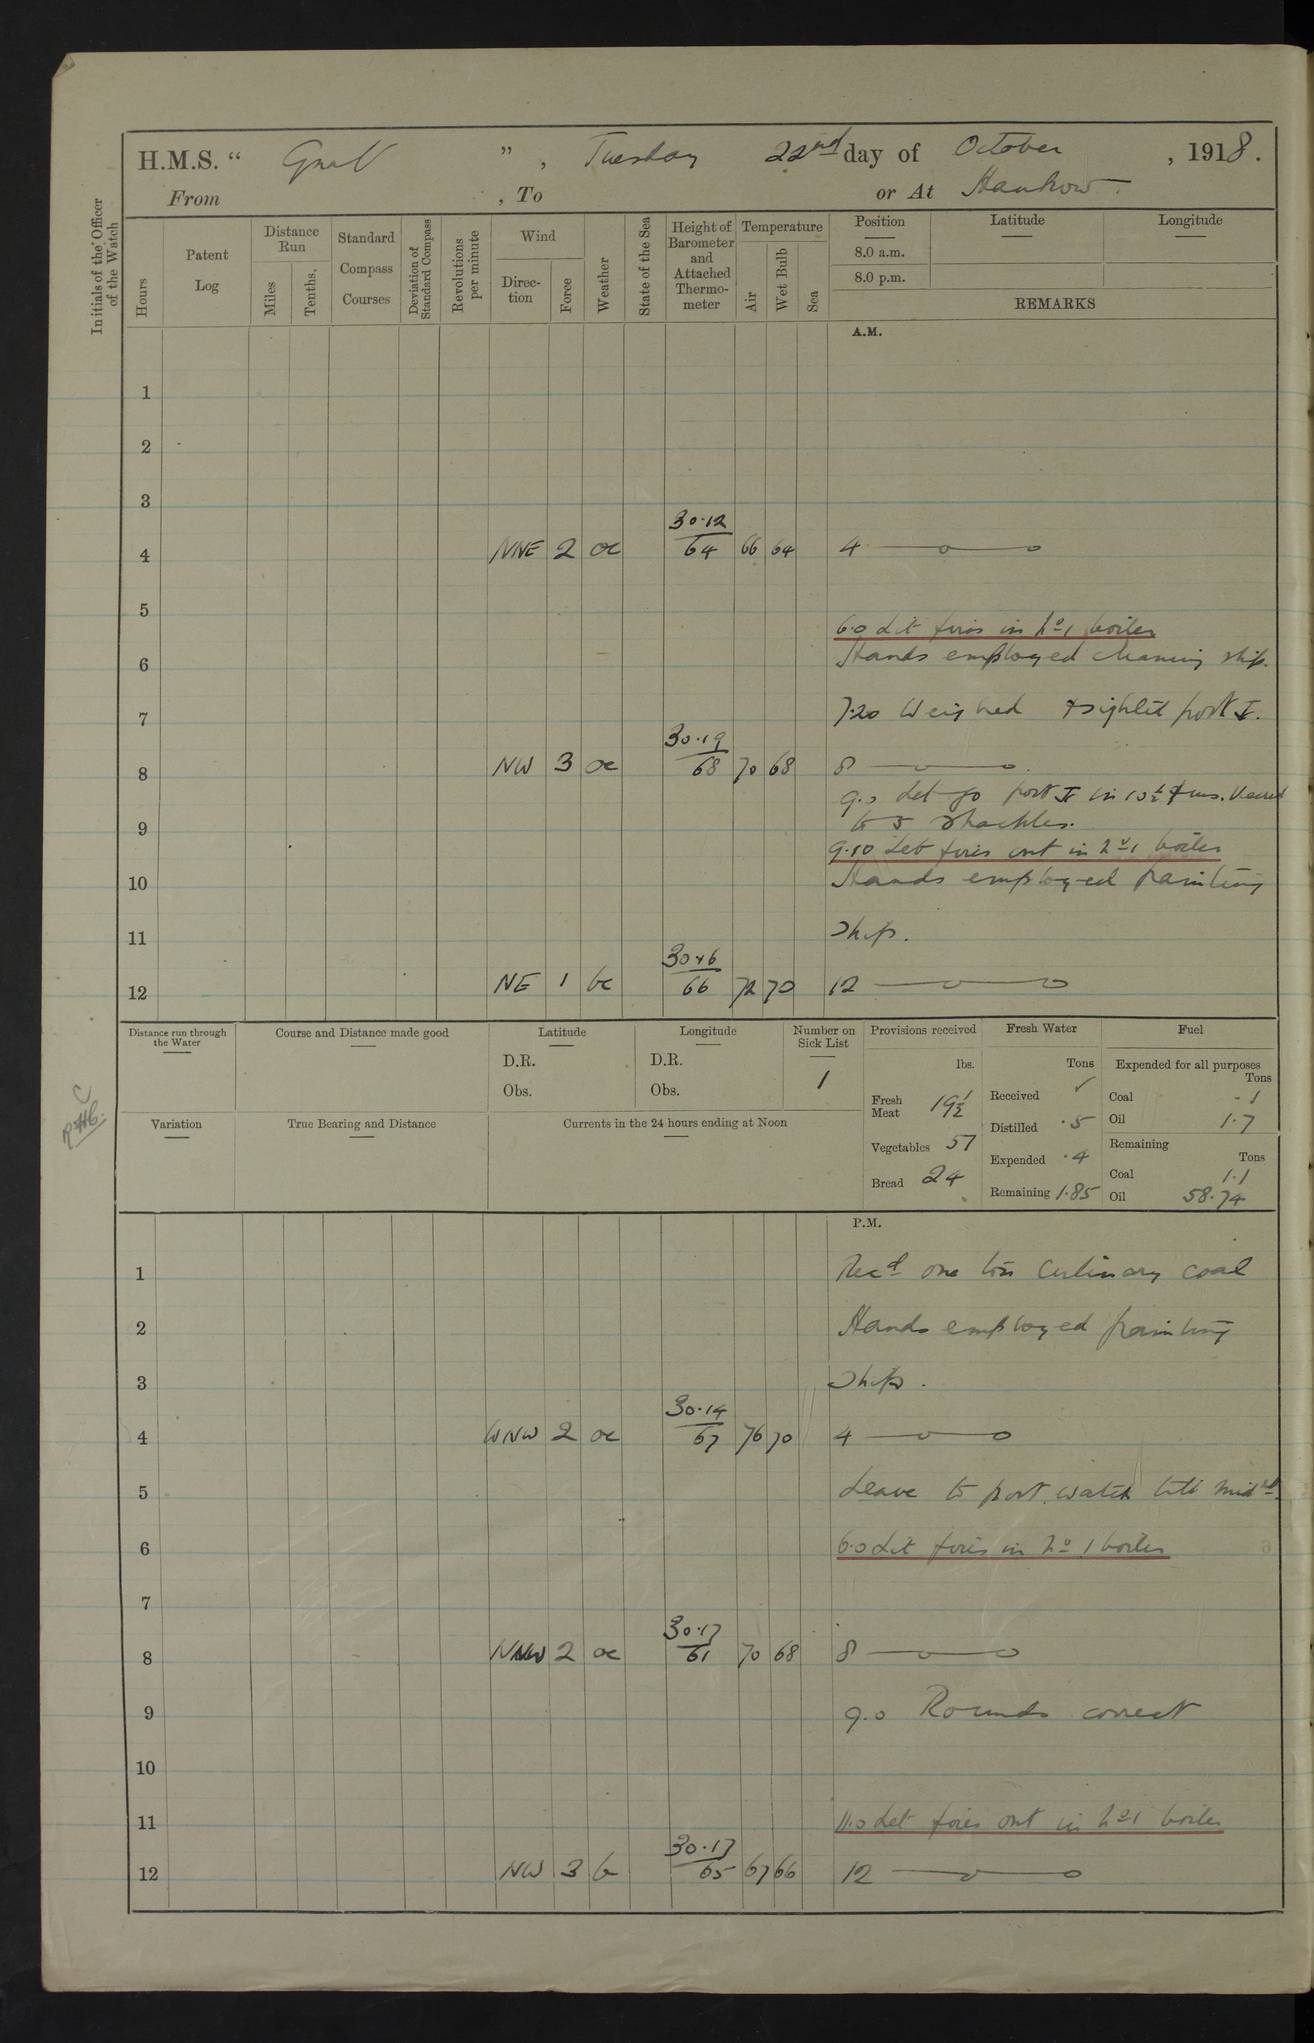 H.M.S. “ Gnat ” , Tuesday 22nd day of October , 1918.
From , To or At Hankow.
Initials of the Officer of the Watch
Hours
Patent Log
Distance Run
Miles
Tenths.
Standard Compass Courses
Deviation of Standard Compass
Revolutions per minute
Wind
Direction
Force
Weather
State of the Sea
Height of Barometer and Attached Thermometer
Temperature
Air
Wet Bulb
Sea
Position
Latitude
Longitude
8.0 a.m.
8.0 p.m.
REMARKS
A.M.
1
2
3
30.12
4 NNE 2 oc 64 66 64 4
5
6.0 Lit fires in No 1 boiler
6 Hands employed cleaning ship.
7 7.20 Weighed & sighted port
30.19
8 NW 3 oc 68 70 68 8
9.0 Let go port in 10½ fms. Veered
9 to 5 shackles.
9.10 Let fires out in No 1 boiler
10 Hands employed painting
11 ship.
12 NE 1 bc 66 72 70 12
Distance run through the Water
Course and Distance made good
Latitude
D.R.
Obs.
Longitude
D.R.
Obs.
Number on Sick List
1
Variation
True Bearing and Distance
Currents in the 24 hours ending at Noon
Provisions received
lbs.
Fresh Meat 19½
Vegetables 57
Bread 24
Fresh Water
Tons
Received ✓
Distilled .5
Expended .4
Remaining 1.85
Fuel
Expended for all purposes
Tons
Coal .1
Oil 1.7
Remaining
Tons
Coal 1.1
Oil 58.74
P.M.
1 Recd one ton Culinary coal
2 Hands employed painting
3 ship.
30.14
4 WNW 2 oc 67 76 70 4
5 Leave to port watch till midt.
6 6.0 Lit fires in No 1 boiler
7
30.17
8 NNW 2 oc 61 70 68 8
9 9.0 Rounds correct
10
11 11.0 Let fires out in No 1 boiler
30.17
12 NW 3 b 65 67 66 12